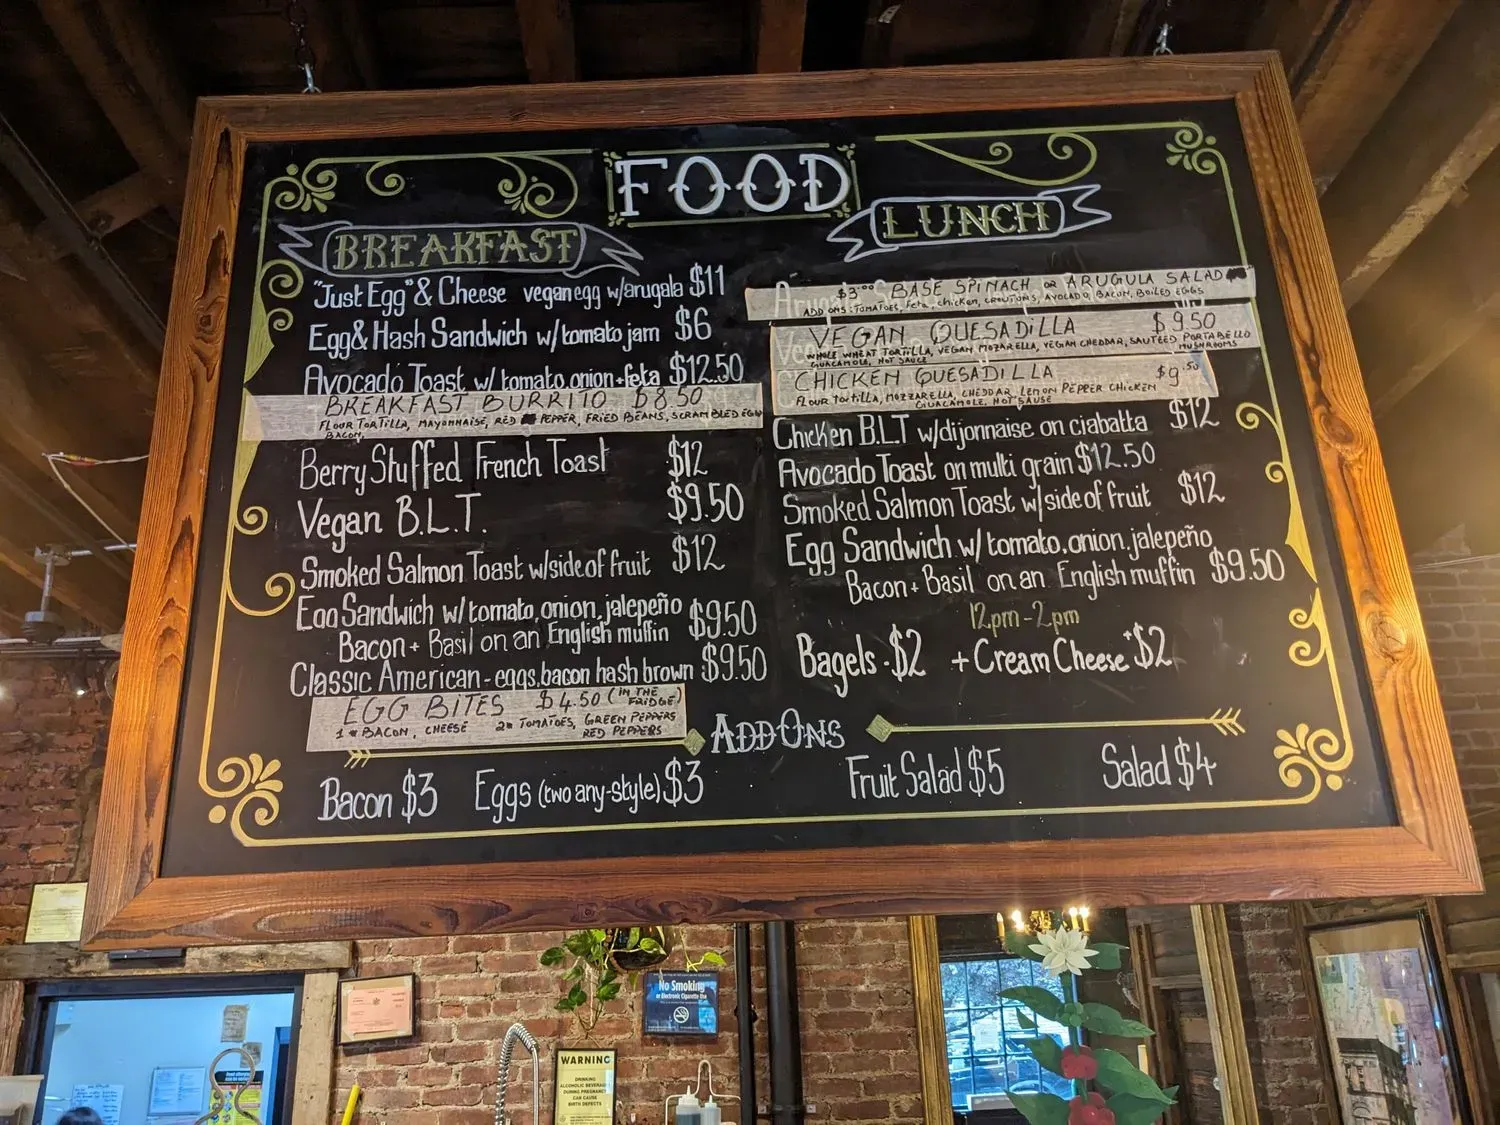 FOOD
BREAKFAST
"Just Egg" & Cheese vegan egg w/arugala $11
Egg & Hash Sandwich w/ tomato jam $6
Avocado Toast w/ tomato, onion + feta $12.50
BREAKFAST BURRITO $8.50
FLOUR TORTILLA, MAYONNAISE, RED PEPPER, FRIED BEANS, SCRAMBLED EGG
BACON,
Berry Stuffed French Toast $12
Vegan B.L.T. $9.50
Smoked Salmon Toast w/side of fruit $12
Egg Sandwich w/ tomato, onion, jalepeño
Bacon + Basil on an English muffin $9.50
Classic American - eggs, bacon hash brown $9.50
EGG BITES $4.50 (IN THE FRIDGE)
1# BACON, CHEESE 2# TOMATOES, GREEN PEPPERS
RED PEPPERS
LUNCH
$3.00 BASE SPINACH OR ARUGULA SALAD
ADD ONS: TOMATOES, feta, chicken, CROUTONS, AVOCADO, BACON, BOILED EGGS
VEGAN QUESADILLA $9.50
WHOLE WHEAT TORTILLA, VEGAN MOZARELLA, VEGAN CHEDDAR, SAUTEED PORTABELLO
MUSHROOMS
GUACAMOLE, HOT SAUCE
CHICKEN QUESADILLA $9.50
FLOUR TORTILLA, MOZZARELLA, CHEDDAR, LEMON PEPPER CHICKEN
GUACAMOLE, HOT SAUSE
Chicken B.L.T w/dijonnaise on ciabatta $12
Avocado Toast on multi grain $12.50
Smoked Salmon Toast w/side of fruit $12
Egg Sandwich w/ tomato, onion, jalepeño
Bacon + Basil on an English muffin $9.50
12pm - 2pm
Bagels - $2 + Cream Cheese +$2
ADD ONS
Bacon $3 Eggs (two any-style) $3 Fruit Salad $5 Salad $4
No Smoking
or Electronic Cigarette Use
WARNING
DRINKING
ALCOHOLIC BEVERAGES
DURING PREGNANCY
CAN CAUSE
BIRTH DEFECTS